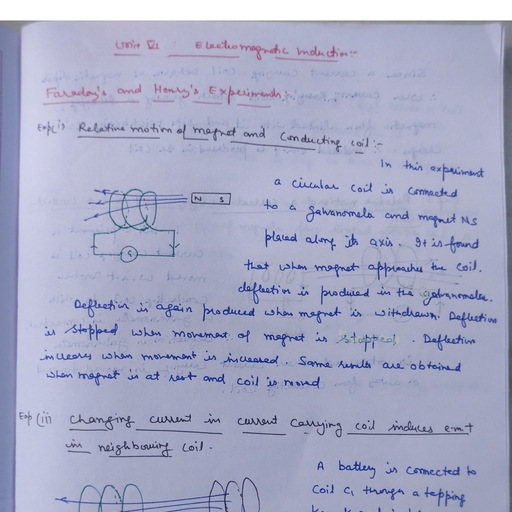 Unit VI : Electromagnetic Induction:-
Faraday's and Henry's Experiments:-
Exp(i) Relative motion of magnet and Conducting coil:-
In this experiment
a circular coil is connected
to a galvanometer and magnet NS
N S
placed along its axis. It is found
that when magnet approaches the coil.
G
deflection is produced in the galvanometer.
Deflection is again produced when magnet is withdrawn. Deflection
is stopped when movement of magnet is stopped. Deflection
increases when movement is increased. Same results are obtained
when magnet is at rest and coil is moved
Exp (ii) Changing current in current carrying coil induces e.m.f
in neighbouring coil.
A battery is connected to
coil C1 through a tapping